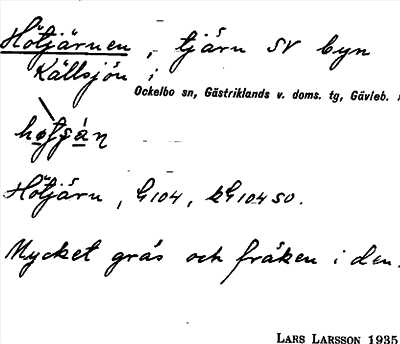 Hötjärnen, tjärn SV byn
Källsjön i
Ockelbo sn, Gästriklands v. doms. tg, Gävleb.
Hötjärn, G104, kG104 SO.
Mycket gräs och fräken i den.
LARS LARSSON 1935